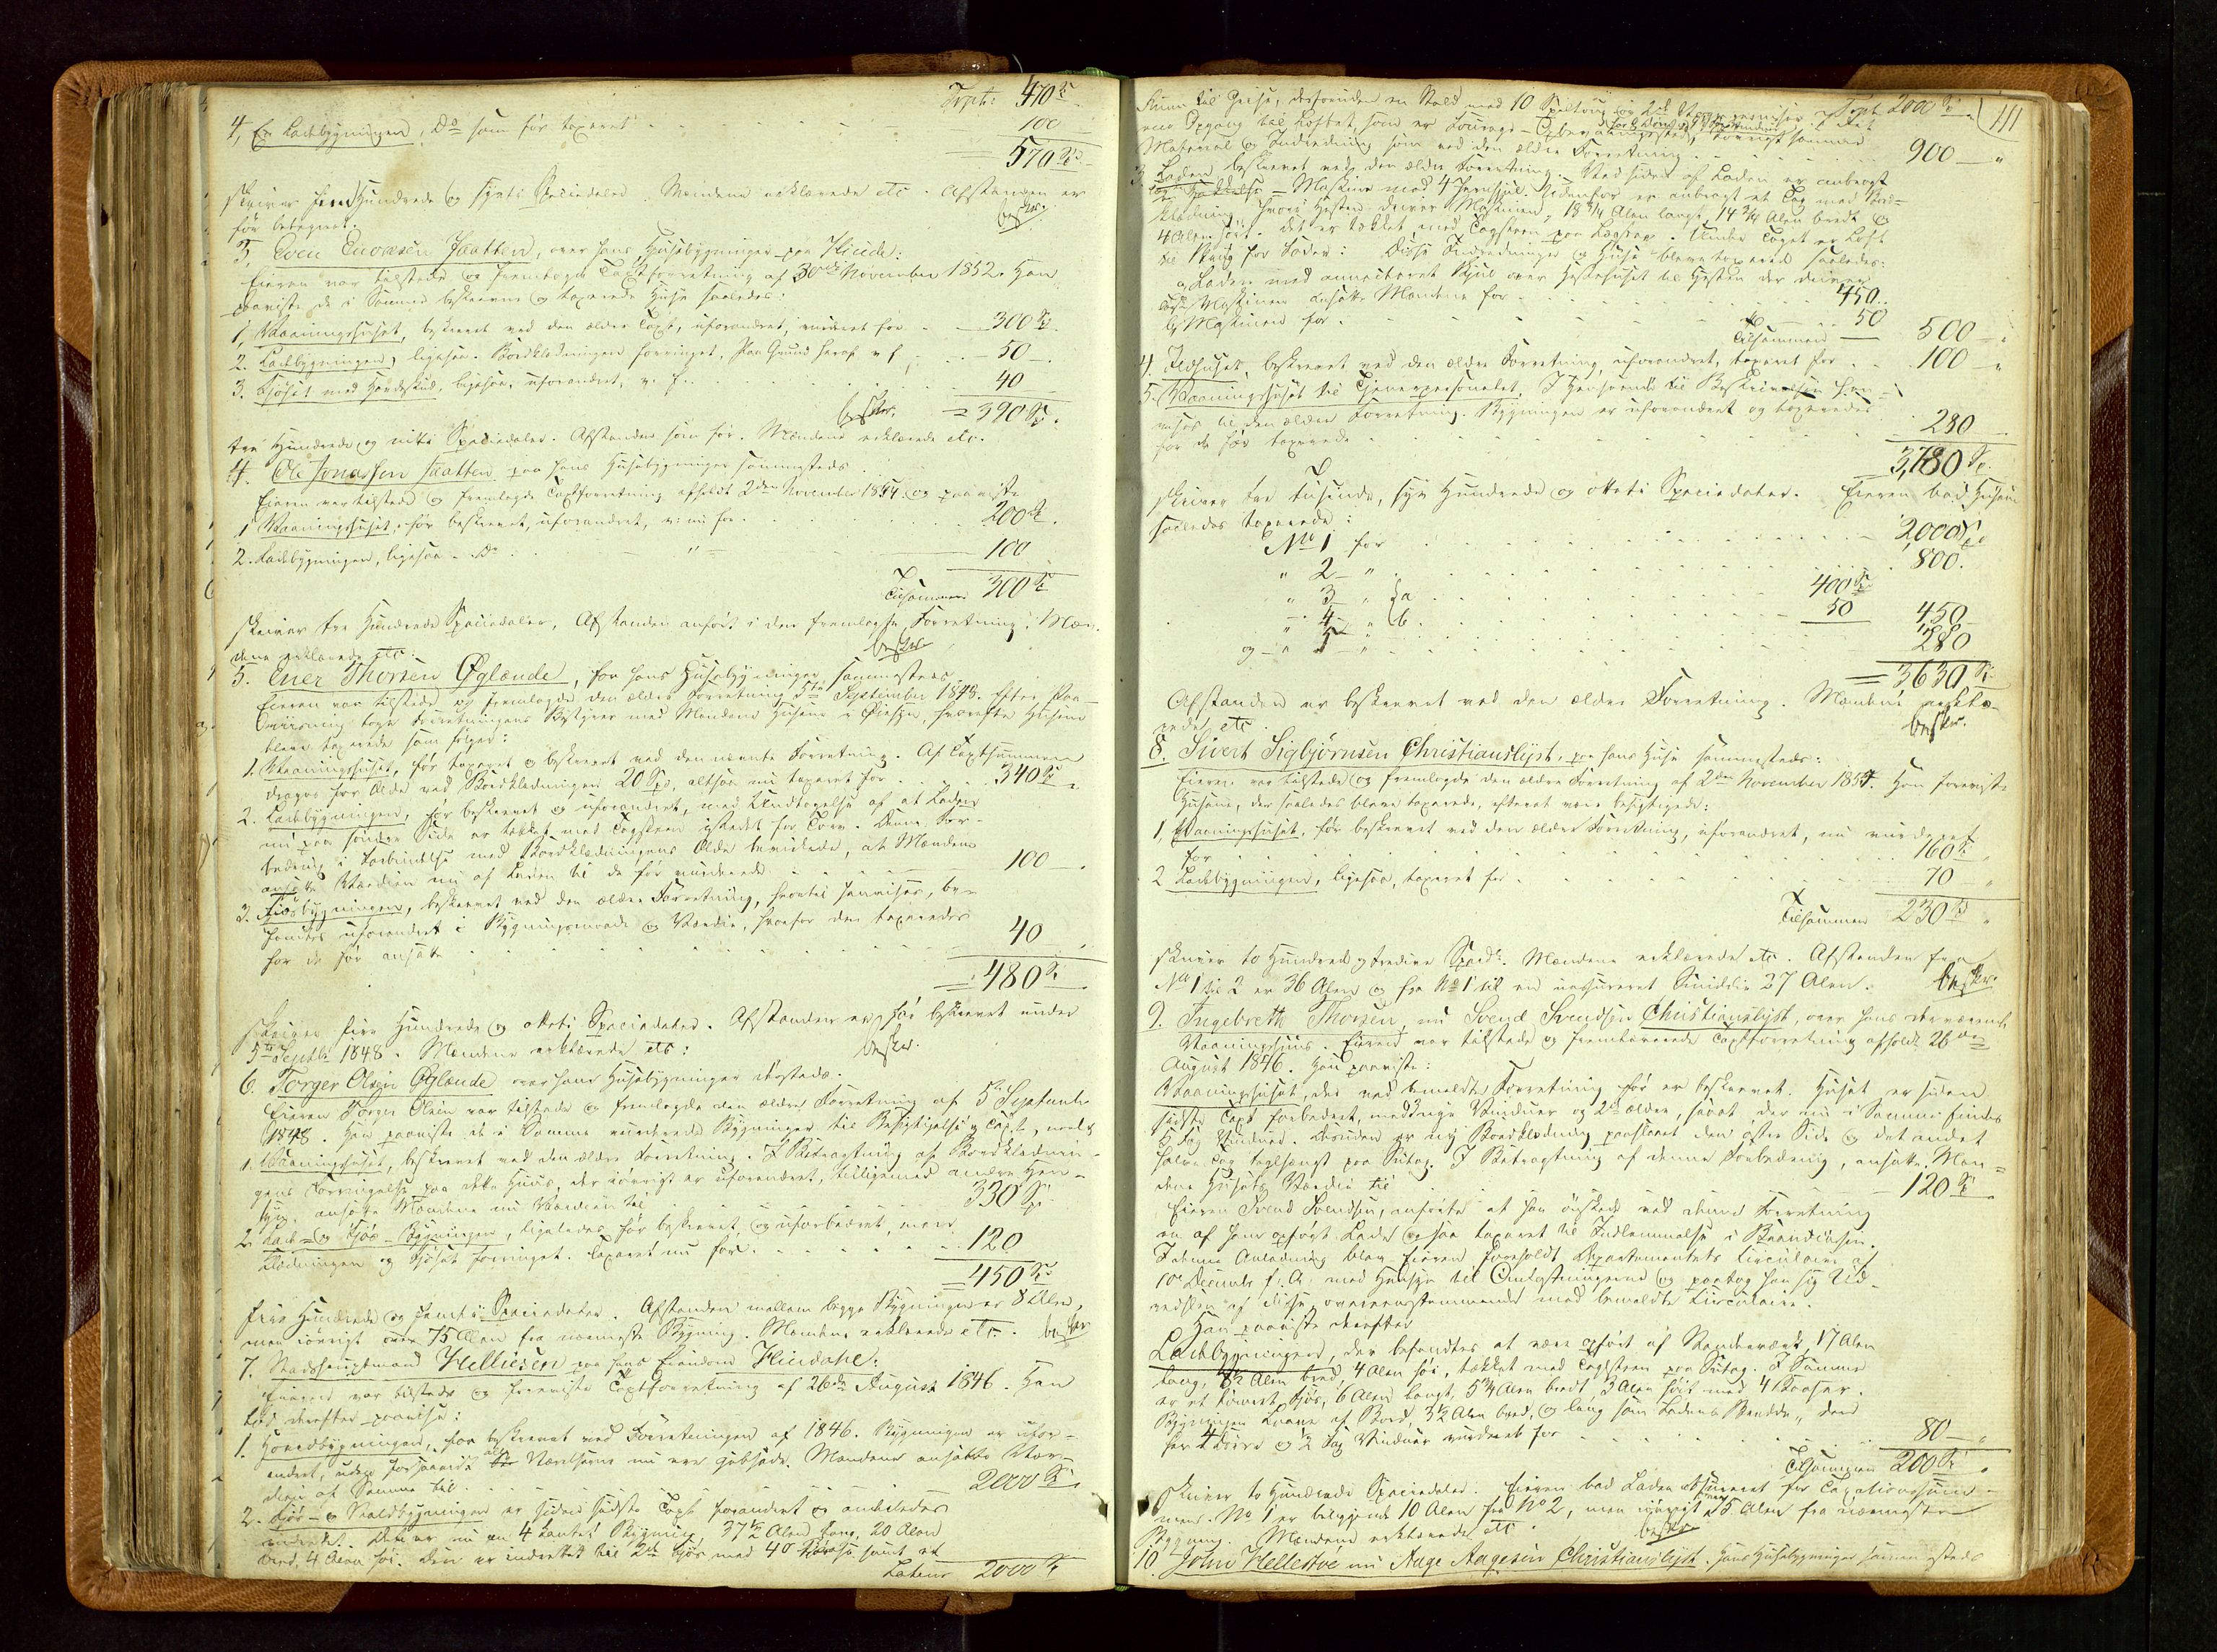 Trpt: 470 Sp
4, En Ladebygningen, Do som før taxeret 100
570 Sp
skriver fem Hundrede og syvti Speciedaler. Mændene erklærede etc. Afstanden er
før betegnet. beskr.
3, Even Enoksen Jaatten, over hans Huusebygninger paa Hinde:
Eieren var tilstede og fremlagde Taxtforretning af 30te November 1852. Han
paaviste de i Samme beskrevne og taxerede Huse saaledes:
1, Vaaningshuset, beskrevet ved den ældre Taxt, uforandret, vurderet for 300 Sp.
2. Ladebygningen, ligesaa. Bordklædningen forringet, paa Grund heraf v. f. 50
3. Fjøset med Hardeskud, ligesaa, uforandret, v. f. 40
beskr. = 390 Sp.
tre Hundrede og nitti Speciedaler. Afstanden som før. Mændene erklærede etc.
4. Ole Jonassen Jaatten paa hans Huusebygninger sammesteds
Eieren var tilstede og fremlagde Taxtforretning afholdt 2den November 1854 og paaviste
1 Vaaningshuset, før beskrevet, uforandret, v: nu for 200 Sp.
2. Ladebygningen, ligesaa Do " 100
Tilsammen 300 Sp
skriver tre Hundrede Speciedaler, Afstanden anført i den fremlagte Forretning. Mæn-
dene erklærede etc: beskr
5. Ener Thorsen Øglænde, for hans Huusebygninger sammesteds.
Eieren var tilstede og fremlagde den ældre Forretning 5te September 1848. Efter Paa-
viisning toge Forretningens Bestyrer med Mændene Husene i Øiesyn, hvorefter Husene
bleve taxerede som følger:
1. Vaaningshuset, før taxeret og beskrevet ved den nævnte Forretning. Af Taxtsummen
drages for Ælde ved Bordklædningen 20 Sp, altsaa nu taxeret for 340 Sp
2. Ladebygningen, før beskrevet og uforandret, med Undtagelse af at Laden
nu paa søndre Side er tækket med Tagsteen istedet for Torv. Denne For-
bedring i Forbindelse med Bordklædningens Ælde bevirkede, at Mændene
ansatte Værdien nu af Laden til de før vurderede 100
3. Fjøsbygningen, beskrevet ved den ældre Forretning, hvortil henvises, be-
fandtes uforandret i Bygningsmaade og Værdie, hvorfor den taxeredes
for de før ansatte 40
= 480 Sp
skriver fire Hundrede og otteti Speciedaler. Afstanden er før beskrevet under
5te Septbr 1848. Mændene erklærede etc: beskr.
6. Torger Olsen Øglænde over hans Huusebygninger dersteds.
Eieren Torger Olsen var tilstede og fremlagde den ældre Forretning af 5te Septembr
1848. Han paaviste de i Samme vurderede Bygninger til Besigtigelse og Taxt,
1. Vaaningshuset, beskrevet ved den ældre Forretning. I Betragtning af Bordklædnin-
gens Forringelse paa dette Huus, der iøvrigt er uforandret, tilligemed andre Hen-
syn, ansatte Mændene nu Værdien til 330 Sp.
2. Lade- og Fjøs-Bygningen, ligeledes før beskrevet, og uforbedret, men
Klædningen og Fjøset forringet. Taxeret nu for 120
= 450 Sp
fire Hundrede og femti Speciedaler. Afstanden mellem begge Bygninger er 8 Alen,
men iøvrigt over 75 Alen fra nærmeste Bygning. Mændene erklærede etc. beskr
7. Stadshauptmand Helliesen paa hans Eiendom Hindahl:
Eieren var tilstede og foreviste Taxtforretning af 26de August 1846. Han
lod derefter paavise:
1. Hovedbygningen, før beskrevet ved Forretningen af 1846. Bygningen er ufor-
andret, uden forsaavidt alle Værelserne nu ere gibsede. Mændene ansatte Vær-
dien af Samme til 2000 Sp
2. Fjøs- og Staldbygningen er siden sidste Taxt forandret og anderledes
indredet. Den er nu en 4 kantet Bygning, 37½ Alen lang, 20 Alen
bred, 4 Alen høi. Den er indrettet til 2de Fjøs med 40 Baase samt et
Latus 2000 Sp
111
Trpt 2000 Sp
Rum til Grise, desforuden en Stald med 10 Spiltoug
med Opgang til Loftet, som er Fourage-Opbevaringssted
Material og Indredning som ved den ældre Forretning 900
3. Laden beskrevet ved den ældre Forretning. Ved Siden af Laden er anbragt
en Tærskelse-Maskine med 4 Jernhjul. Udenfor er anbragt et Tag med Bord-
klædning, hvori Hesten driver Maskinen, 18¾ Alen langt, 14¾ Alen bredt og
4 Alen høit. Det er tækket med Tagsteen paa Lægter. Under Taget er Loft
til Plads for Foder. Disse Indredninger og Huse bleve taxerede saaledes:
a, Laden med annecteret Skjul over Hestehuset til Hesten der driver
Maskinen ansatte Mændene for 450.
b, Maskinen for 50
Tilsammen 500
4. Ildhuset, beskrevet ved den ældre Forretning, uforandret, taxeret for 100
5. Vaaningshuset til Tjenerpersonalet. I Henseende til Beskrivelsen hen-
vises til den ældre Forretning. Bygningen er uforandret og taxeredes
for de før taxerede 280
3,780 Sp.
skriver tre tusinde, syv Hundrede og otteti Speciedaler. Eieren bad Husene
saaledes taxerede:
No 1 for 2000 Sp
" 2 " 800.
" 3 " a 400 Sp
" 4 " b 50 450
og " 5 " 280
= 3630 Sp
Afstanden er beskrevet ved den ældre Forretning. Mændene erklæ-
rede etc beskr.
8. Sivert Sigbjørnsen Christianslyst, paa hans Huse sammesteds:
Eieren var tilstede og fremlagde den ældre Forretning af 2den November 1854. Han foreviste
Husene, der saaledes bleve taxerede, efterat være besigtigede:
1, Vaaningshuset, før beskrevet ved den ældre Forretning, uforandret, nu vurderet
for 160 Sp
2 Ladebygningen, ligesaa, taxeret for 70
Tilsammen 230 Sp
skriver to Hundrede og tredive Specd. Mændene erklærede etc. Afstanden fra
No 1 til 2 er 36 Alen og fra No 1 til en uassureret Smiddie 37 Alen. beskr.
9. Ingebreth Thorsen, nu Svend Svendsen Christianslyst, over hans derværende
Vaaningshuus. Eieren var tilstede og fremleverede Taxtforretning afholdt 26de
August 1846. Han paaviste:
Vaaningshuset, der ved bemeldte Forretning før er beskrevet. Huset er siden
sidste Taxt forbedret, med 3 nye Vinduer og 2de ældre, saaat der nu i Samme findes
5 Fag Vinduer. Desuden er ny Bordklædning paaslaaet den østre Side og det andet
halve Tag teglhængt paa Sutag. I Betragtning af denne Forbedring, ansatte Mæn-
dene Husets Værdie til 120 Sp
Eieren Svend Svendsen, anførte at han ønskede ved denne Forretning
en af ham opført Lade ogsaa taxeret til Indlemmelse i Brandkassen.
I denne Anledning blev Eieren foreholdt Departementets Circulaire af
10de Decembr f. A. med Hensyn til Omkostningerne og paatog han sig Ud-
redslen af disse overeensstemmende med bemeldte Circulaire.
Han paaviste derefter
Ladebygningen, der befandtes at være opført af Stænderværk, 17 Alen
lang, 8½ Alen bred, 4 Alen høi, tækket med Taglsteen paa Sutag. I Samme
er et tømret Fjøs, 6 Alen langt, 5¾ Alen bredt, 3 Alen høit med 4 Baaser.
Bygningen Svane af Bord, 3½ Alen bred, og lang som Ladens Bredde, den
har 4 Døre og ½ Fag Vinduer vurderet for 80
Tilsammen 200 Sp
skriver to Hundrede Speciedaler. Eieren bad Laden assureret for Taxationssum-
men. No 1 er beliggende 10 Alen fra No 2, men iøvrigt 75 Alen fra nærmeste
Bygning. Mændene erklærede etc. beskr
10. John Hellestve nu Aage Aagesen Christianslyst. Hans Huusebygninger sammesteds